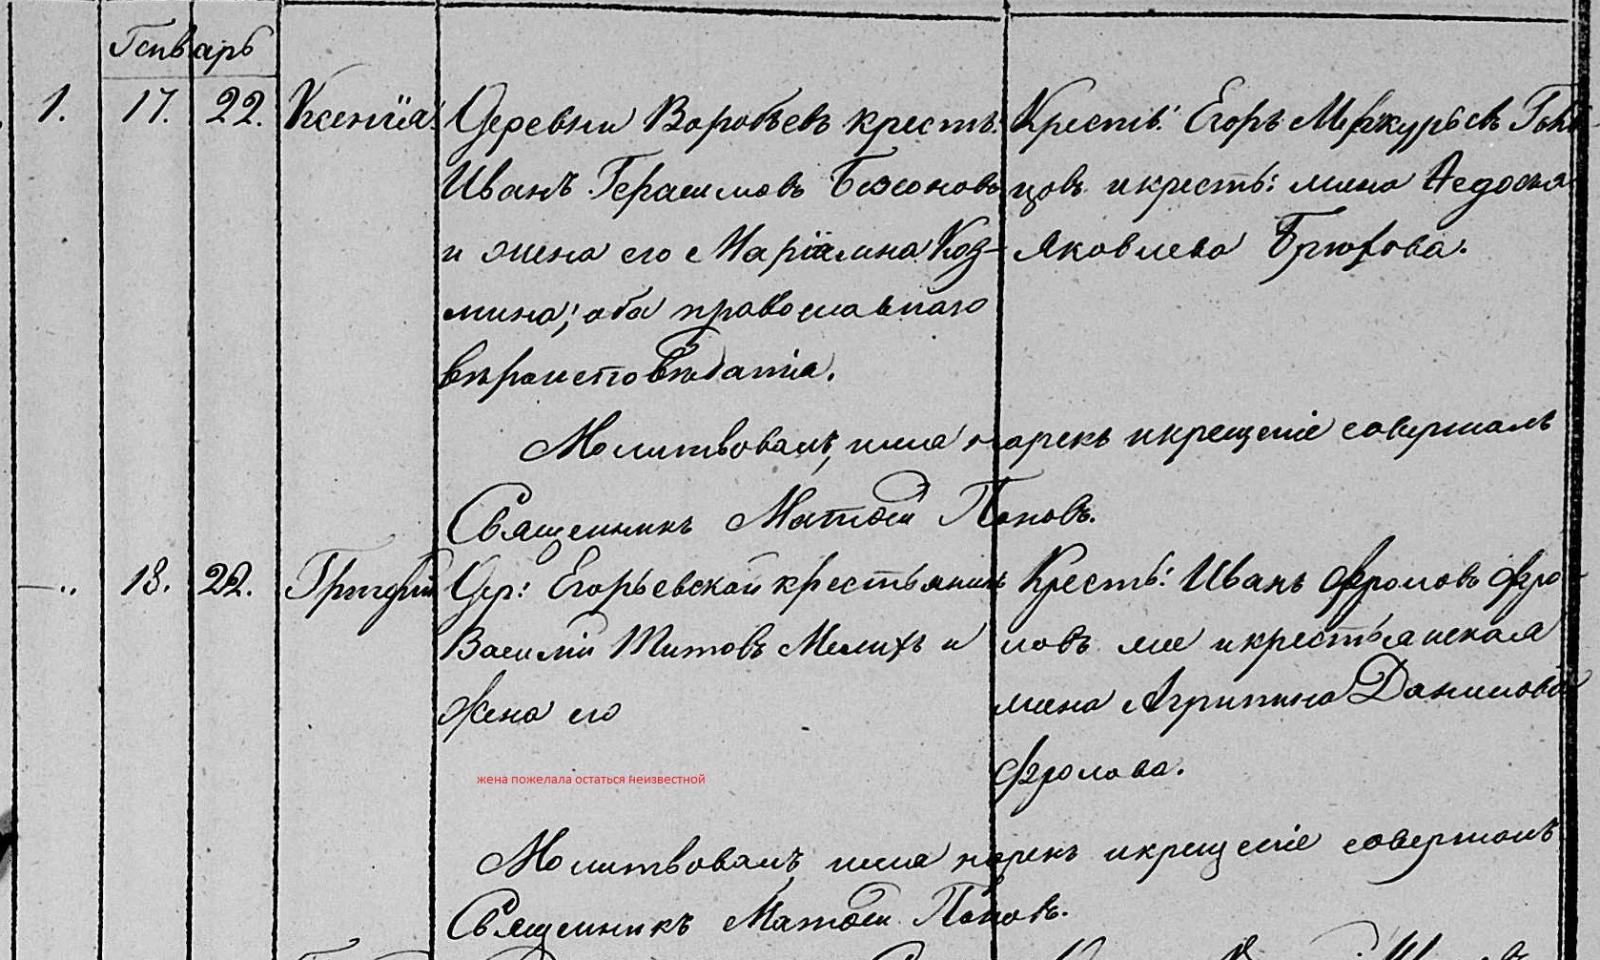 Генварь
1. 17. 22. Ксенiя
Деревни Воробьевъ крестъ:
Иванъ Герасимовъ Безсоновъ
и жена его Марiамна Коз-
мина; оба православнаго
вѣроисповѣданiя.
Крестъ: Егоръ Меркурьевъ Гон-
цовъ и крестъ: жена Ѳедосья
Яковлева Брюхова.
Молитвовалъ, имя нарекъ и крещенiе совершалъ
Священникъ Матѳей Поповъ.
—„ 18. 22. Григорiй
Дер: Егорьевской крестьянинъ
Василiй Титовъ Мелихъ и
жена его
жена пожелала остаться неизвестной
Крестъ: Иванъ Фроловъ Фро
ловъ же и крестьянская
жена Агрипина Данилова
Фролова.
Молитвовалъ, имя нарекъ и крещенiе совершалъ
Священникъ Матѳей Поповъ.